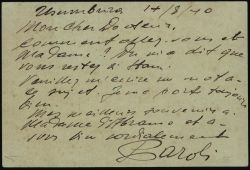 Usumbura 14/3/40
Mon cher Docteur,
Comment allez-vous et
Madame? On m'a dit que
vous êtes à
Veuillez m'écrire un mot à
ce sujet. Je me porte toujours
bien.
Mes meilleurs souvenirs à
Madame et à
vous bien cordialement